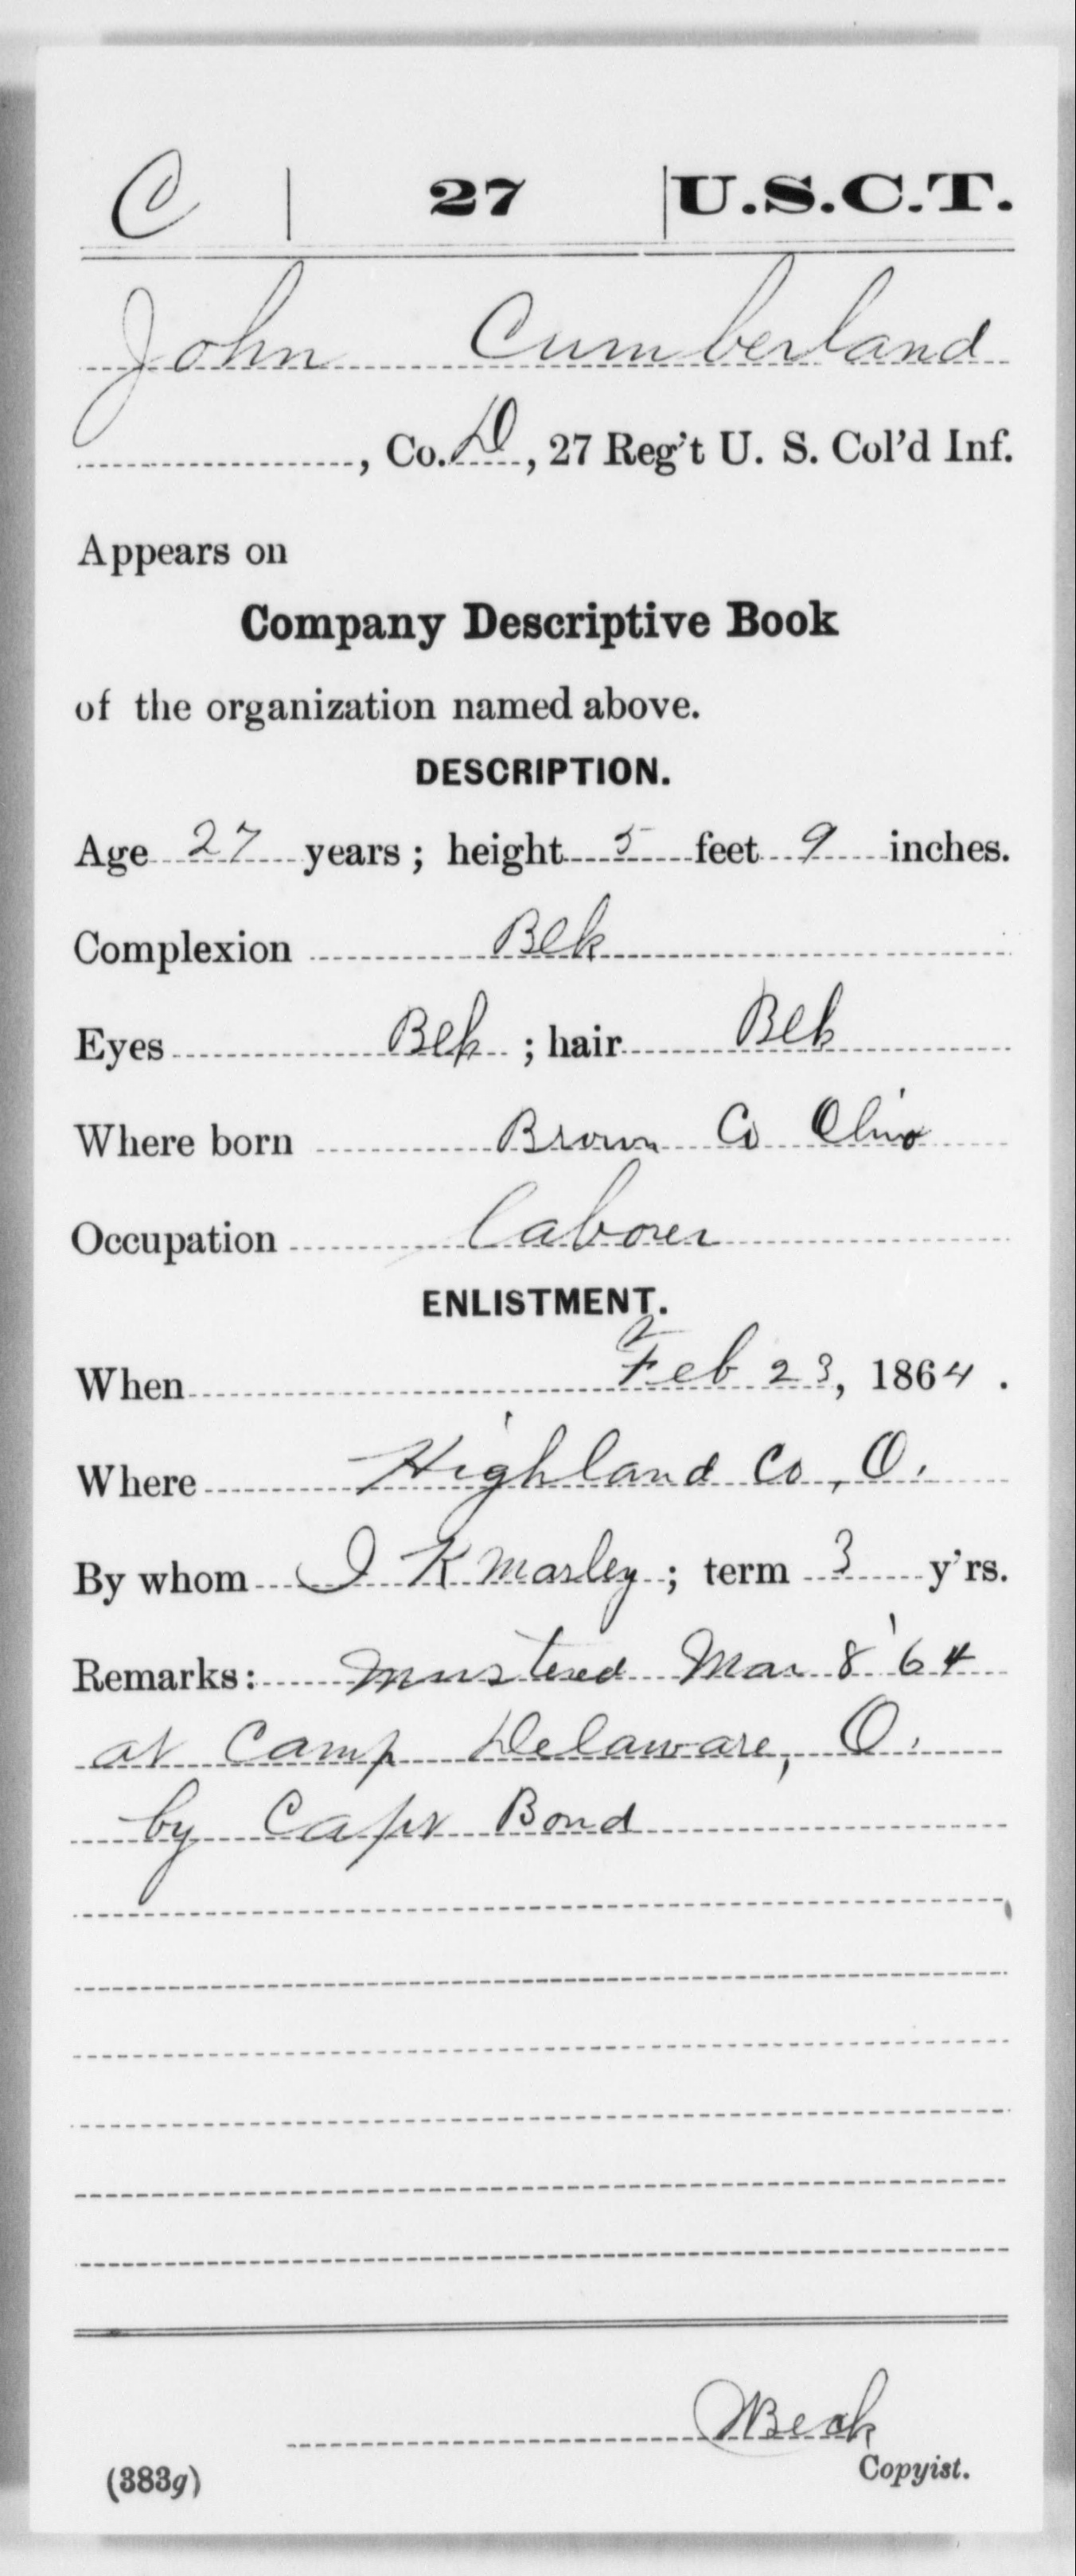 C | 27 | U.S.C.T.
John Cumberland
, Co. D, 27 Reg't U. S. Col'd Inf.
Appears on
Company Descriptive Book
of the organization named above.
DESCRIPTION.
Age 27 years; height 5 feet 9 inches.
Complexion Blk
Eyes Blk ; hair Blk
Where born Brown Co Ohio
Occupation Laborer
ENLISTMENT.
When Feb 23, 1864.
Where Highland Co, O.
By whom I K Marley ; term 3 y'rs.
Remarks: Mustered Mar 8 '64
at Camp Delaware, O.
by Capt Bond
Beck
(383g) Copyist.